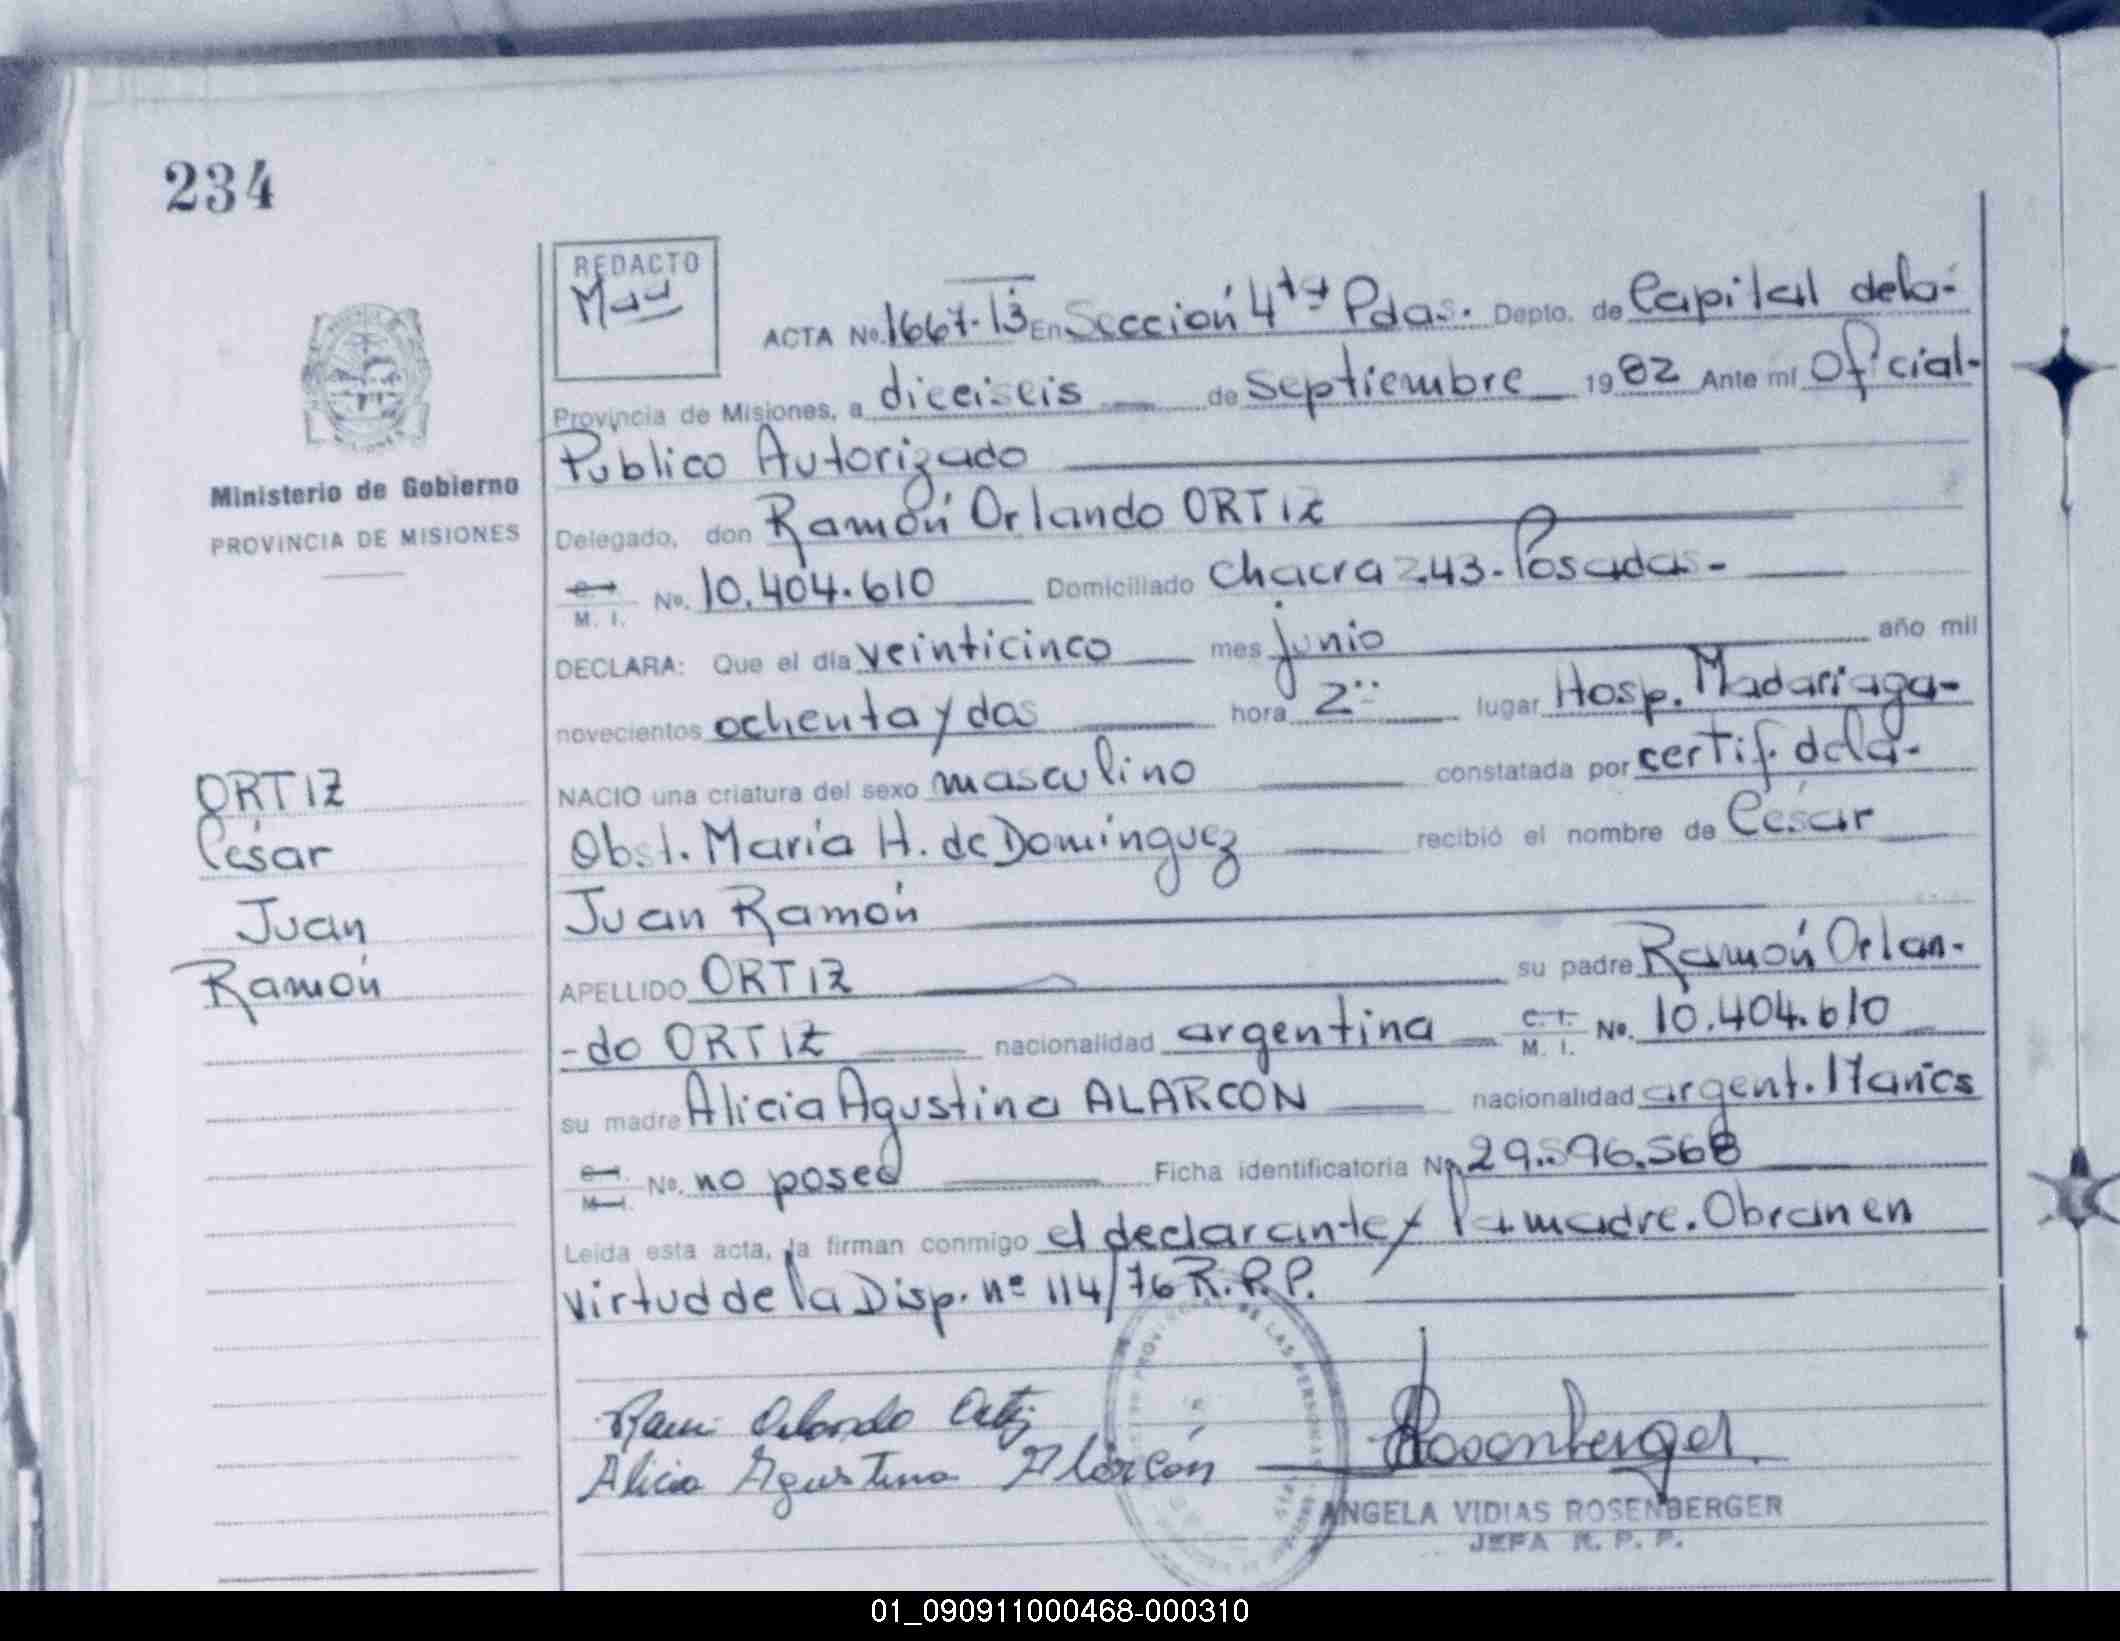 234
REDACTO
ACTA No. 1667-13 En Sección 4ta Pdas. Depto. de Capital de la-
Provincia de Misiones, a dieciseis de Septiembre 1982 Ante mí Oficial-
Publico Autorizado
Ministerio de Gobierno
PROVINCIA DE MISIONES
Delegado, don Ramón Orlando ORTIZ
M. I. No. 10.404.610 Domiciliado Chacra 243-Posadas-
DECLARA: Que el día veinticinco mes junio año mil
novecientos ochenta y dos hora 2 lugar Hosp. Madariaga-
NACIO una criatura del sexo masculino constatada por certif. de la-
Obst. María H. de Domínguez recibió el nombre de César
Juan Ramón
ORTIZ
César
Juan
Ramón
APELLIDO ORTIZ su padre Ramón Orlan-
-do ORTIZ nacionalidad argentina C. I. M. I. No. 10.404.610
su madre Alicia Agustina ALARCON nacionalidad argent. 17 años
No. no posee Ficha identificatoria No. 29.596.568
Leída esta acta, la firman conmigo el declarante y la madre. Obran en
virtud de la Disp. nº 114/76 R.P.P.
Ramon Orlando Ortiz
Alicia Agustina Alarcón
Rosenberger
PROVINCIAL DE LAS PERSONAS
ANGELA VIDIAS ROSENBERGER
JEFA R. P. P.
01_090911000468-000310